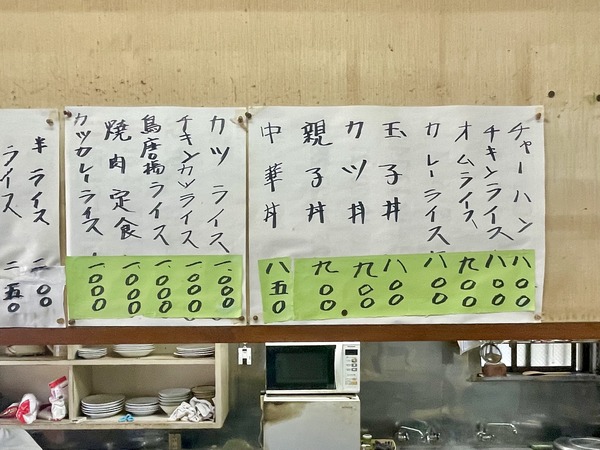 チャーハン 八〇〇
チキンライス 八〇〇
オムライス 九〇〇
カレーライス 八〇〇
玉子丼 八〇〇
カツ丼 九〇〇
親子丼 九〇〇
中華丼 八五〇
カツライス 一、〇〇〇
チキンカツライス 一、〇〇〇
鳥唐揚ライス 一、〇〇〇
焼肉定食 一、〇〇〇
カツカレーライス 一、〇〇〇
半ライス 二〇〇
ライス 二五〇